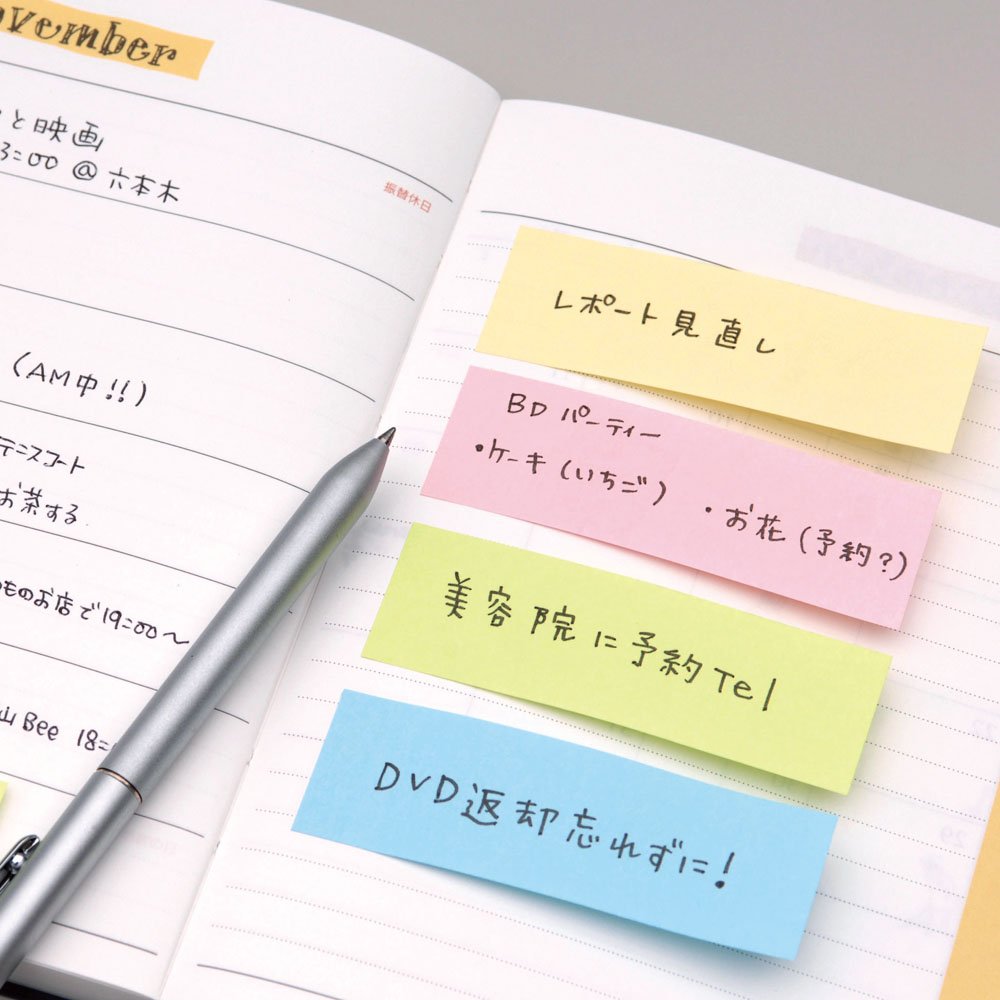 vember
と映画
3:00 @ 六本木
振替休日
(AM中!!)
テニスコート
お茶する
ものお店で19:00〜
山Bee 18:
レポート見直し
BD パーティー
・ケーキ(いちご) ・お花(予約?)
美容院に予約Tel
DVD返却忘れずに!